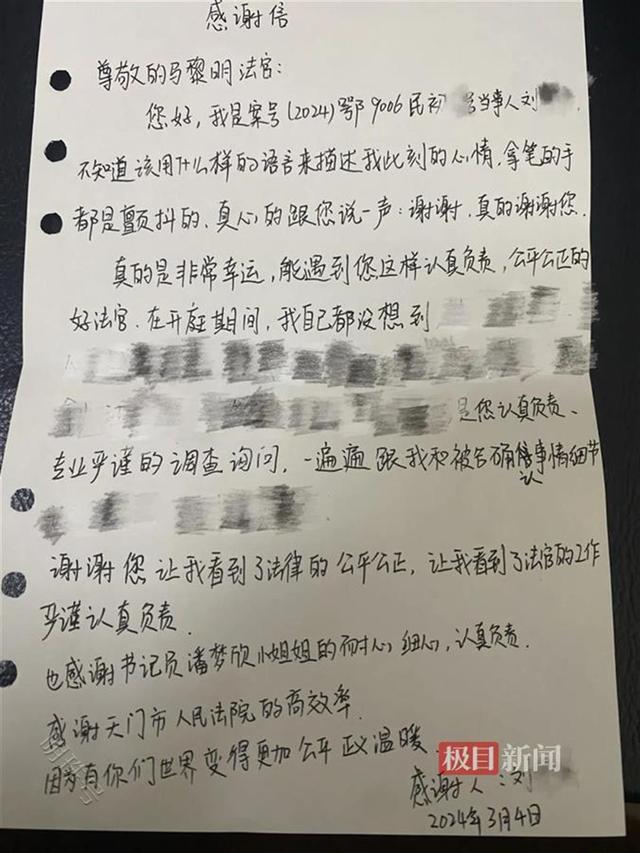 感谢信
尊敬的马黎明法官：
您好，我是案号(2024)鄂9006民初 号当事人刘
不知道该用什么样的语言来描述我此刻的心情，拿笔的手
都是颤抖的，真心的跟您说一声：谢谢，真的谢谢您．
真的是非常幸运，能遇到您这样认真负责，公平公正的
好法官．在开庭期间，我自己都没想到
是您认真负责、
专业严谨的调查询问，一遍遍跟我和被告确认事情细节
谢谢您让我看到了法律的公平公正，让我看到了法官的工作
严谨认真负责．
也感谢书记员潘梦欣小姐姐的耐心细心，认真负责．
感谢天门市人民法院的高效率．
因为有你们世界变得更加公平正义温暖．
极目新闻
感谢人：刘
2024年3月4日